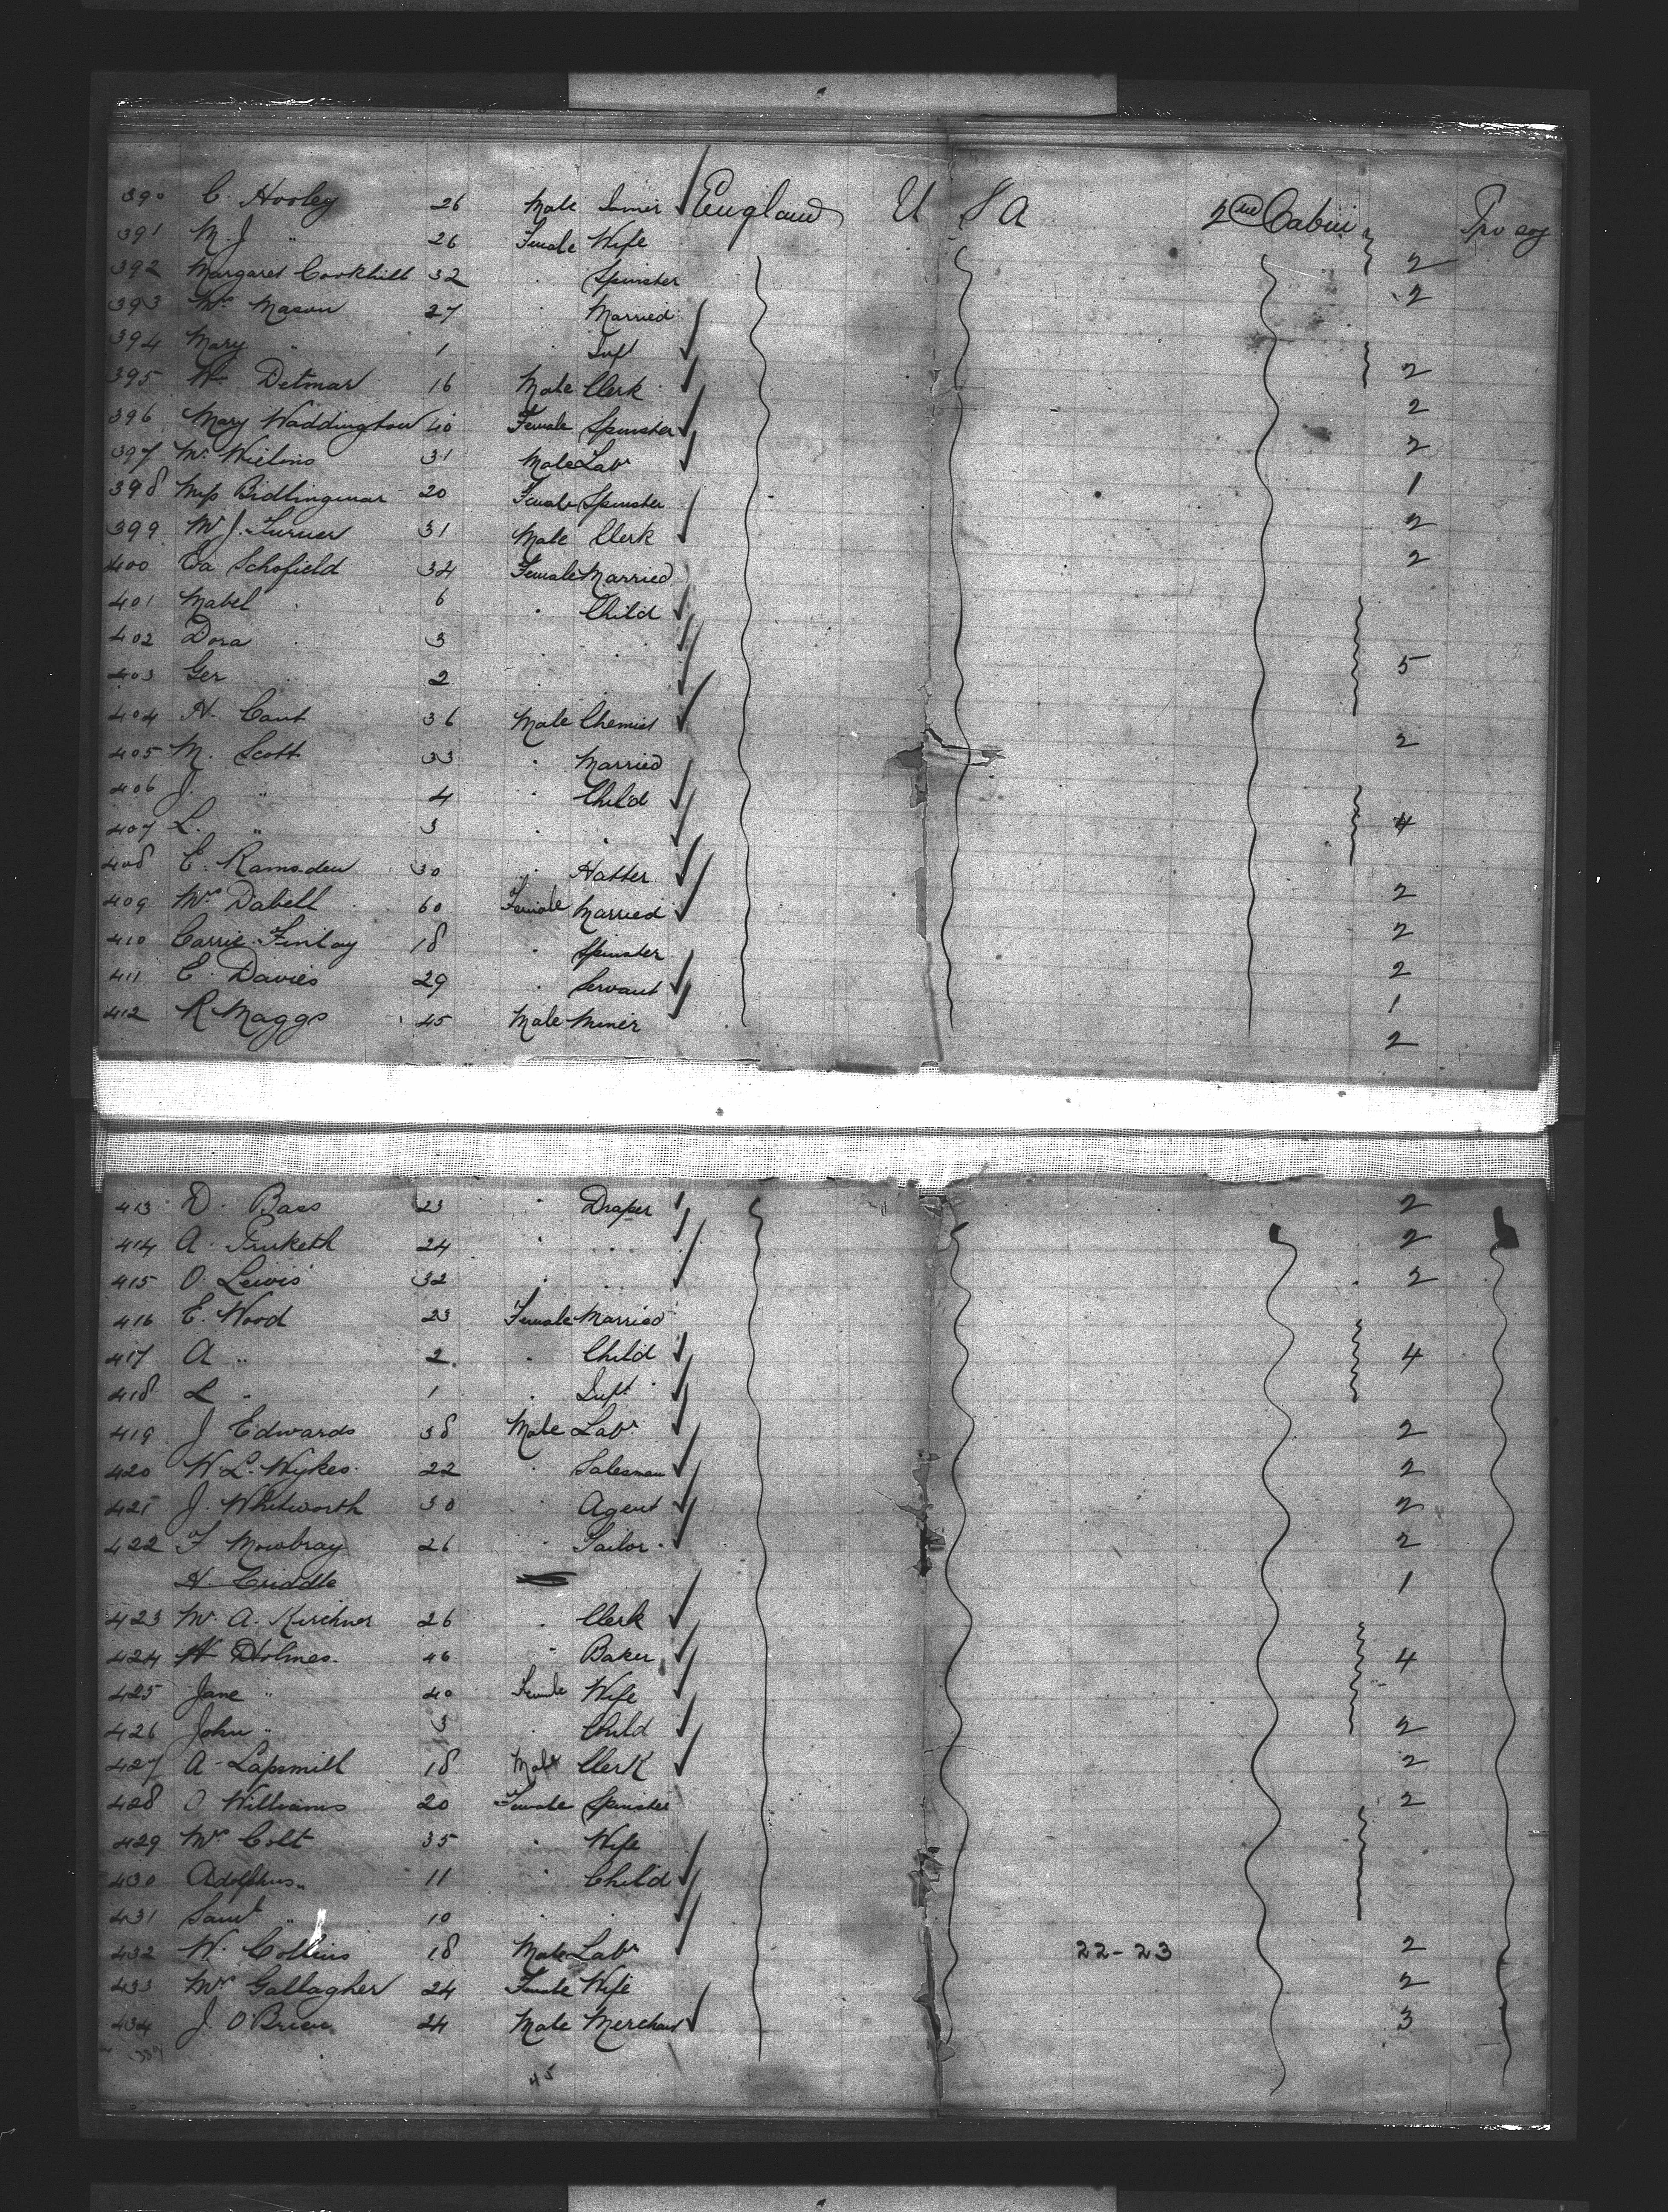 390 C. Hooley 26 Male England U S A 2nd Cabin
391 M. J " 26 Female Wife 2
392 Margaret Cookhill 32 " Spinster 2
393 Mrs Mason 27 " Married
394 Mary " 1 " Inft 2
395 W. Detmar 16 Male Clerk 2
396 Mary Waddington 40 Female Spinster 2
397 Mr Wielins 31 Male Labr 1
398 Miss Bidlingmar 20 Female Spinster 2
399 Mr J. Turner 31 Male Clerk 2
400 Schofield 34 Female Married
401 Mabel " 6 " Child
402 Dora " 3 " "
403 Ger " 2 " " 5
404 H. Cant 36 Male Chemist 2
405 M. Scott 33 " Married
406 J. " 4 " Child
407 L. " 3 " " 4
408 E. Ramsden 30 " Hatter 2
409 Mrs Dabell 60 Female Married 2
410 Carrie Finlay 18 " Spinster 2
411 E. Davies 29 " Servant 1
412 R. Maggs 45 Male Miner 2
413 D. Bass 23 " Draper 2
414 A. 24 " " 2
415 O. Lewis 32 " " 2
416 E. Wood 23 Female Married
417 A " 2 " Child 4
418 L " 1 " Inft
419 J Edwards 38 Male Labr 2
420 W. L. Wykes 22 " Salesman 2
421 J. Whitworth 30 " Agent 2
422 F Mowbray 26 " Tailor 2
H. Criddle 1
423 Mr. A. Kirchner 26 " Clerk
424 H Holmes 46 " Baker 4
425 Jane " 40 Female Wife
426 John " 3 " Child 2
427 A. Lapsmill 18 Male Clerk 2
428 O Williams 20 Female Spinster 2
429 Mrs Colt 35 " Wife
430 Adolphus " 11 " Child
431 Saml " 10 " "
432 W. Collins 18 Male Labr 22-23 2
433 Mrs Gallagher 24 Female Wife 2
434 J. O'Brien 24 Male Merchant 3
45